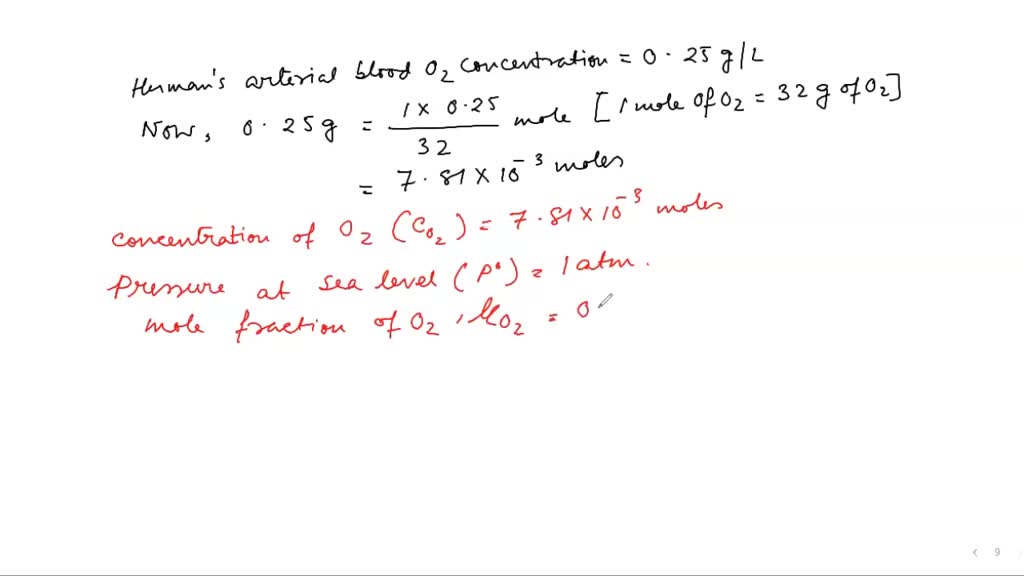 Human's arterial blood O₂ concentration = 0.25 g/L
Now, 0.25 g = 1 × 0.25 / 32 mole [1 mole of O₂ = 32 g of O₂]
= 7.81 × 10⁻³ moles
concentration of O₂ (C_O₂) = 7.81 × 10⁻³ moles
Pressure at sea level (P°) = 1 atm.
mole fraction of O₂, χ_O₂ = 0
9